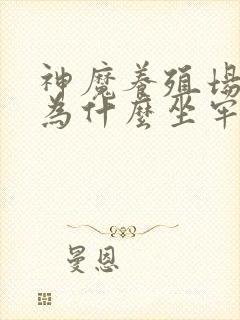 神魔養殖場
為什麼坐牢
曼恩